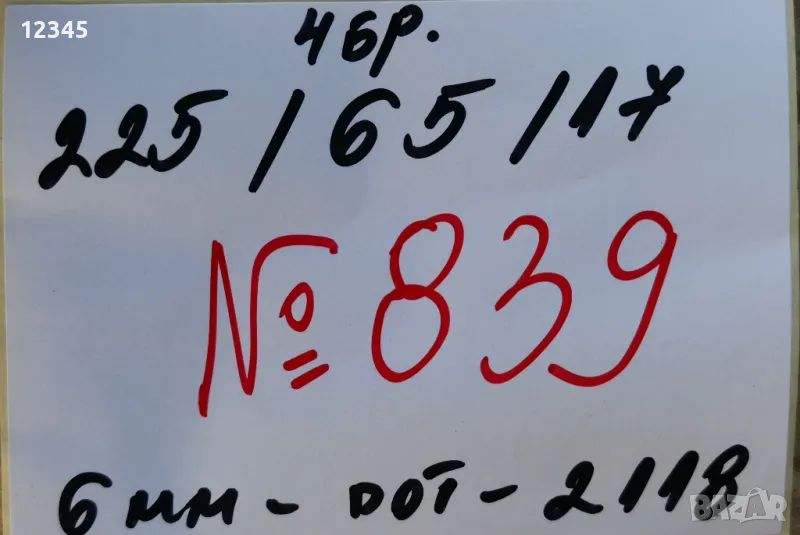 12345
4бр.
225/65/17
№839
6мм-DOT-2118
BAZAR